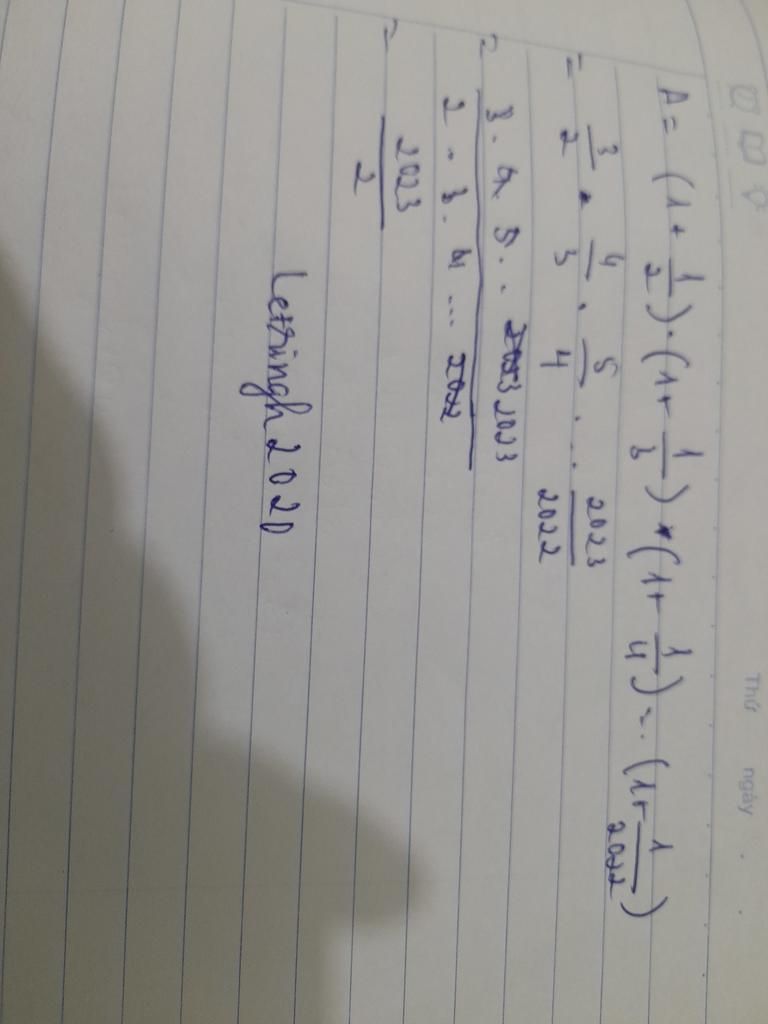 Thứ ngày
A = (1 + 1/2) . (1 + 1/3) . (1 + 1/4) ... (1 + 1/2022)
= 3/2 . 4/3 . 5/4 ... 2023/2022
= 3 . 4 . 5 ... 2023 / 2 . 3 . 4 ... 2022
= 2023/2
Letsingh2020